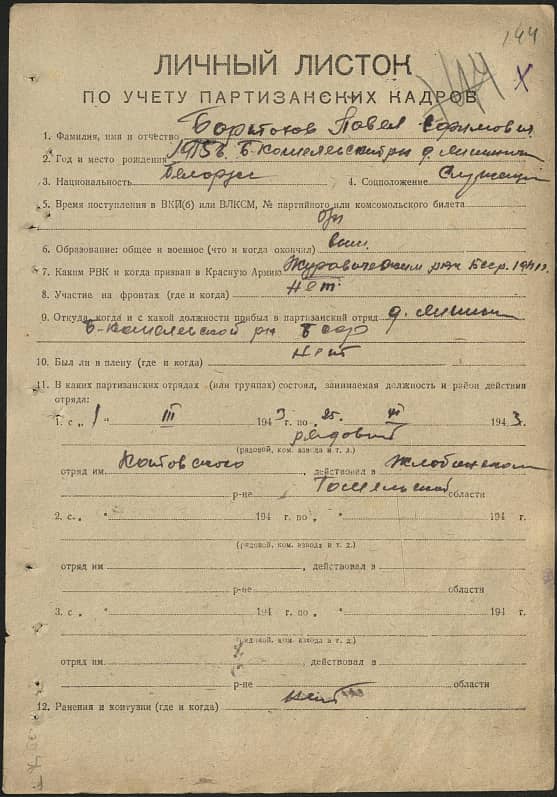 144
ЛИЧНЫЙ ЛИСТОК
ПО УЧЕТУ ПАРТИЗАНСКИХ КАДРОВ
1. Фамилия, имя и отчество Павел Ефимович
2. Год и место рождения 1915 г. Б-Кошелевский р-н д.
3. Национальность Белорус 4. Соцположение Служащий
5. Время поступления в ВКП(б) или ВЛКСМ, № партийного или комсомольского билета
б/п
6. Образование: общее и военное (что и когда окончил)
7. Каким РВК и когда призван в Красную Армию Журавичским рвк Бсср. 1941 г.
8. Участие на фронтах (где и когда) Нет
9. Откуда, когда и с какой должности прибыл в партизанский отряд д.
Б-Кошелевской рн Бсср
10. Был ли в плену (где и когда) Нет
11. В каких партизанских отрядах (или группах) состоял, занимаемая должность и район действия
отряда:
1. с „ 1 " III 1943 г. по „ 25. " 1943 г.
рядовой
(рядовой, ком. взвода и т. д.)
отряд им. Котовского, действовал в Жлобинском
р-не Гомельской области
2. с „ " 194 г. по „ " 194 г.
(рядовой, ком. взвода и т. д.)
отряд им , действовал в
р-не области
3. с „ " 194 г. по „ " 194 г.
(рядовой, ком. взвода и т. д.)
отряд им , действовал в
р-не области
12. Ранения и контузии (где и когда) нет